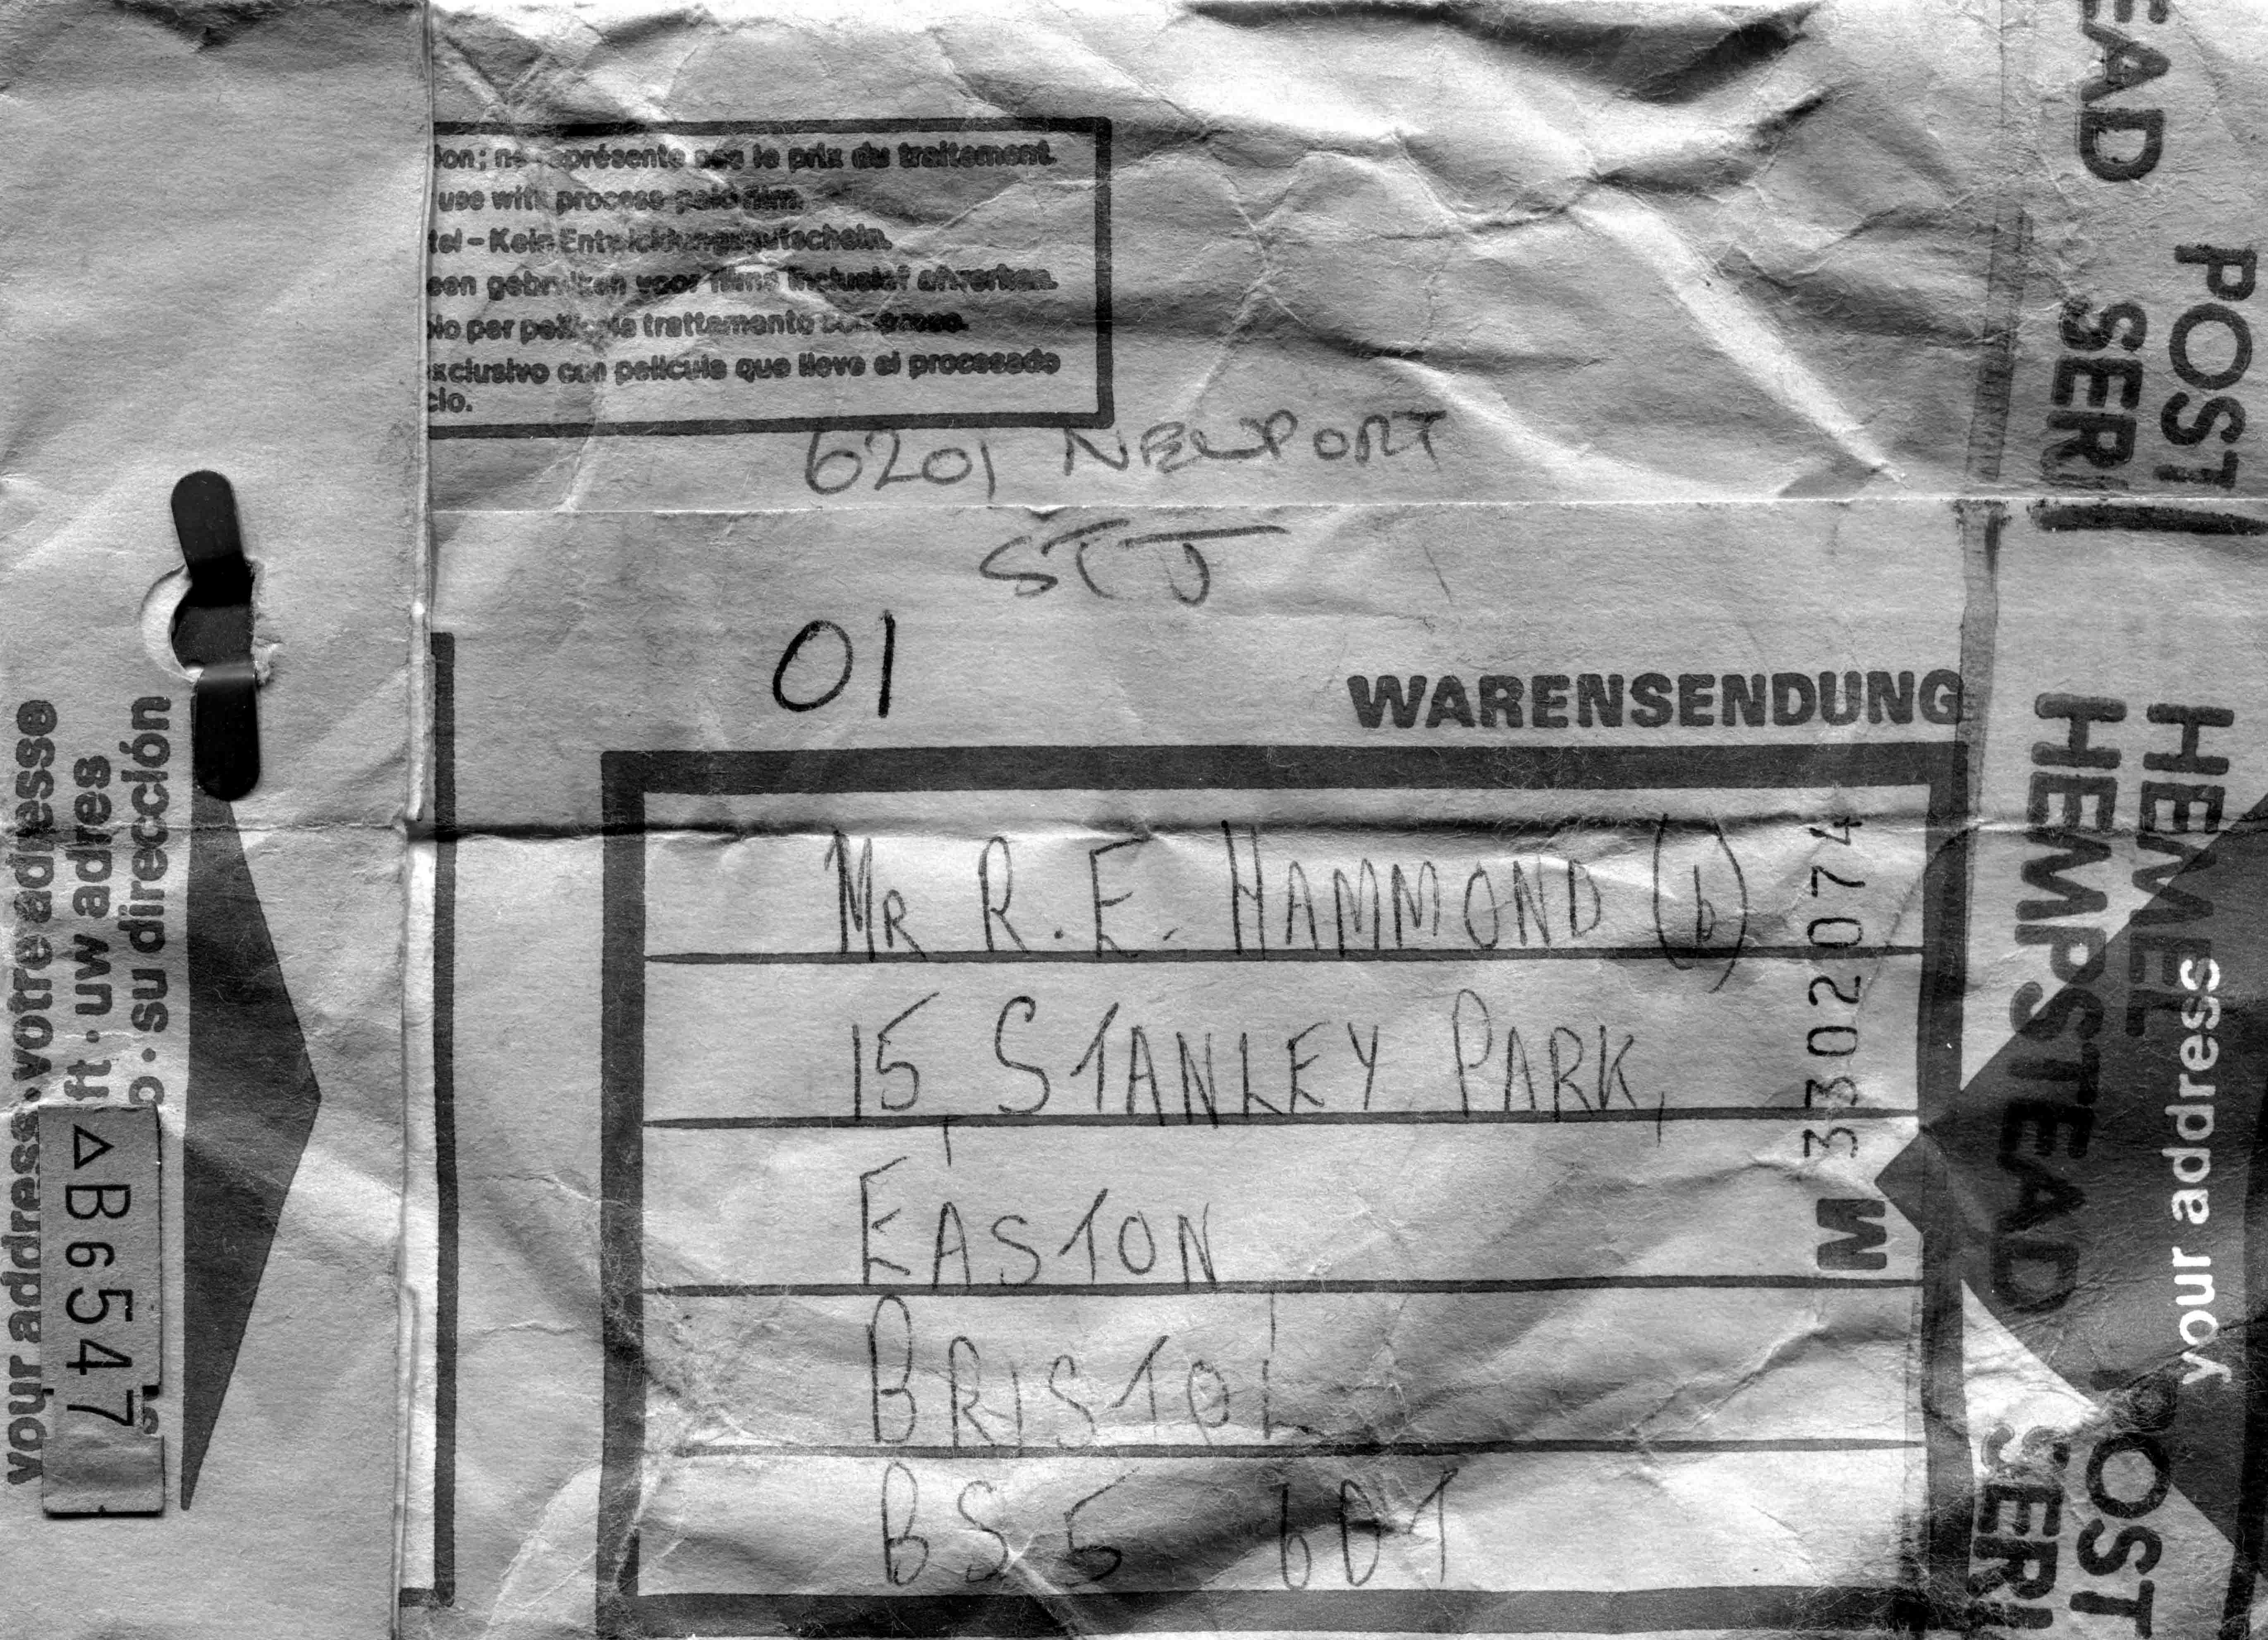 ion; ne représente pas le prix du traitement.
use with process-paid film.
tel – Kein Entwicklungsgutschein.
een gebruiken voor films inclusief afwerken.
olo per pellicole trattamento compreso.
xclusivo con película que lleve el procesado
cio.
6201 NEWPORT
STJ
01
WARENSENDUNG
MR R. E. HAMMOND (b)
15 STANLEY PARK,
EASTON
BRISTOL
BS5
M 3302074
your address · votre adresse
ft · uw adres
o · su dirección
△B6547
EAD
POST
SERI
HEMEL
HEMPSTEAD
your address
POST
SERI